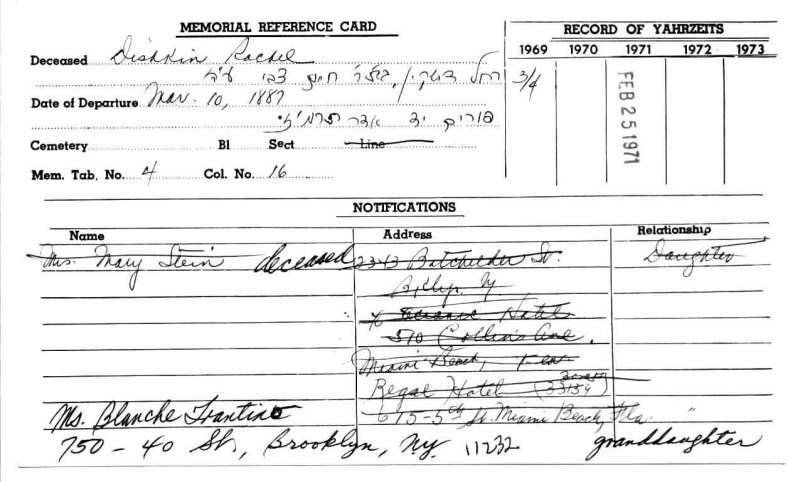 MEMORIAL REFERENCE CARD
RECORD OF YAHRZEITS
1969 1970 1971 1972 1973
Deceased Dishkin Rachel
רחל דישקין, חיים צבי ע"ה
3/4
FEB 25 1971
Date of Departure Mar. 10, 1887
פורים יד אדר תרמ"ז
Cemetery Bl Sect Line
Mem. Tab. No. 4 Col. No. 16
NOTIFICATIONS
Name Address Relationship
Mrs. Mary Stein deceased 2343 Batchelder St. Daughter
Bklyn, N.Y.
% Hotel
510 Collins Ave.
Miami Beach,
Regal Hotel (33139)
Ms. Blanche 615-5th St. Miami Beach, Fla. "
750 - 40 St, Brooklyn, NY 11232 granddaughter